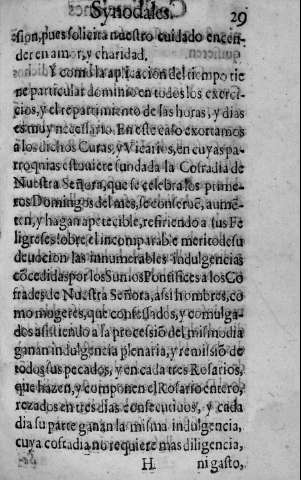 Synodales. 29
csion, pues solicita nuestro cuidado encen-
der en amor, y charidad.
Y como la aplicacion del tiempo tie
ne particular dominio en todos los exerci-
cios, y el repartimiento de las horas, y dias
es muy necessario. En este caso exortamos
a los dichos Curas, y Vicarios, en cuyas pa-
rroquias estouiere fundada la Cofradia de
Nuestra Señora, que se celebra los prime-
ros Domingos del mes, se conseruē, aumē-
ten, y hagan apetecible, refiriendo a sus Fe
ligreses sobre el incomparable merito de su
deuocion las innumerables indulgencias
cōcedidas por los Sumos Pontifices a los Co
frades de Nuestra Señora, assi hombres, co
mo mogeres, que confessados, y comulga-
dos assistiendo a la processiō del mismo dia
ganan indulgencia plenaria, y remissiō de
todos sus pecados, y en cada tres Rosarios,
que hazen, y componen el Rosario entero,
rezados en tres dias consecutiuos, y cada
dia su parte ganan la misma indulgencia,
cuya cofradia no requiere mas diligencia,
H. ni gasto,